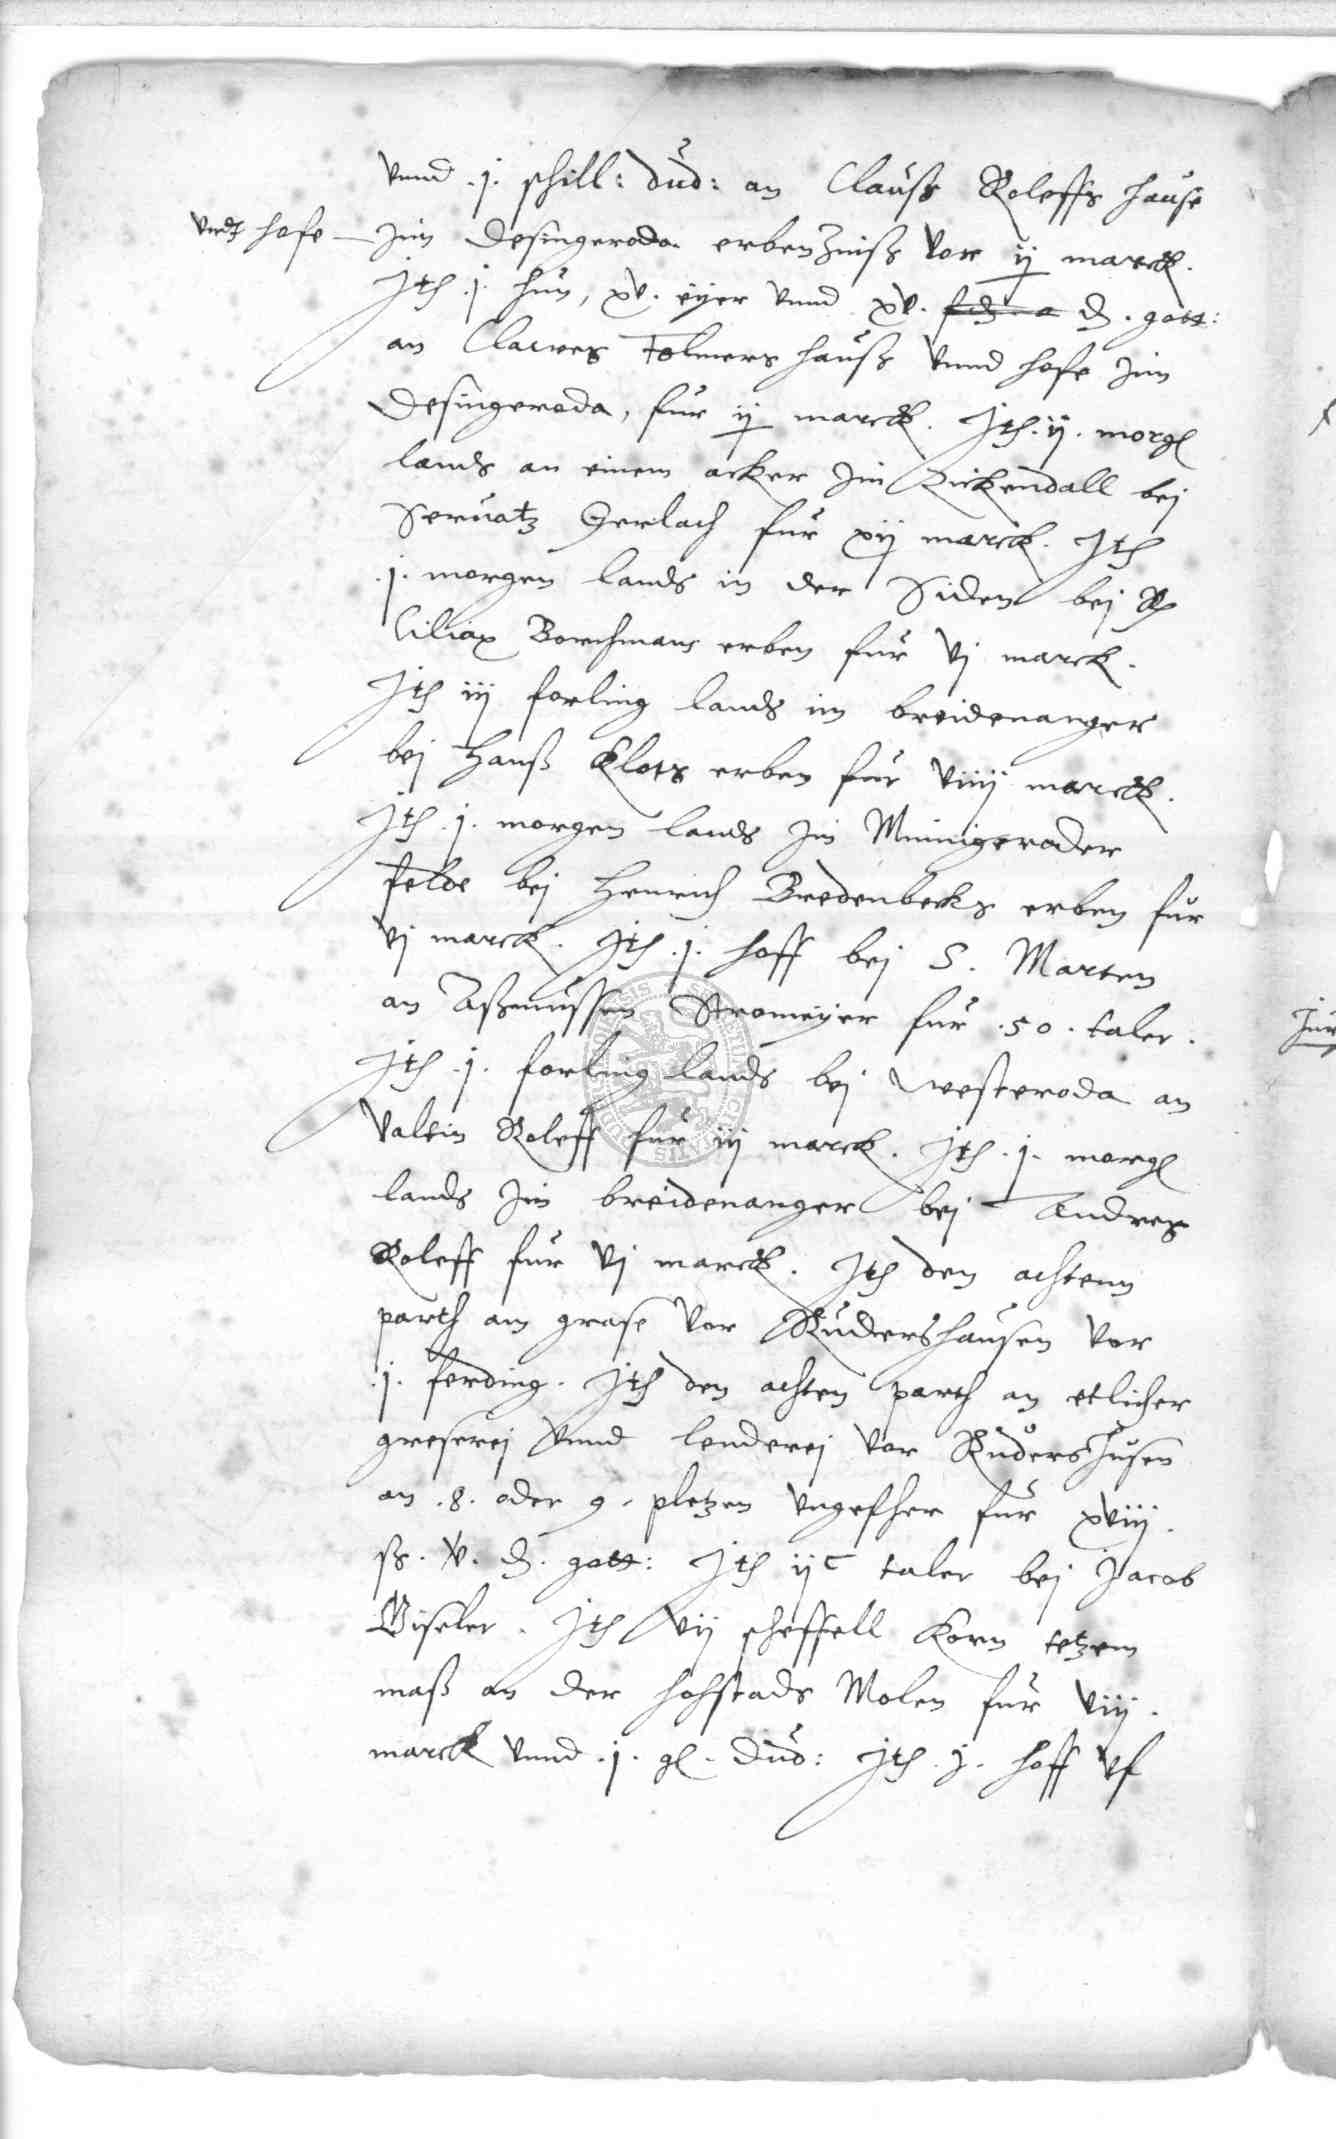 vnnd .j. schill: dud: an Clauss Roleffs hause
vndt hofe — Jnn Desingeroda erbenZinss vor ij marck.
Jth .j. hun, xv. eyer vnnd xv. d. gott:
an Clawes Tolmers hauss vnnd hofe Jnn
Desingeroda, fur ij marck. Jth. ij. morg
lands an einem acker Jm Rickendall bej
Seruatz Gerlach fur xij marck. Jth
.j. morgen lands in der Siden bej
Ciliax Borchmans erben fur vj marck.
Jth iij forling lands im breidenanger
bej Hanß Klots erben fur viiij marck.
Jth .j. morgen lands Jm Minnigeroder
felde bej Henrich Bredenbecks erben fur
vj marck. Jth .j. hoff bej S. Marten
an Aßmussen Stromeyer fur .50. taler.
Jth .j. forling lands bej westeroda an
Valtin Roleff fur iij marck. Jth .j. morg
lands Jm breidenanger bej Andres
Roleff fur vj marck. Jth den achtenn
parth am grase vor Rudershausen vor
.j. ferding. Jth den achten parth an etlicher
greserej vnnd lenderej vor Rudershusen
an .8. oder 9. pletzen vngefher fur xviij.
ß. v. d. gott: Jth ijc taler bej Jacob
Giseler. Jth vij scheffell Korn tetzem
maß an der hohstads Molen fur viij.
marck vnnd .j. gl. dud: Jth .j. hoff vf